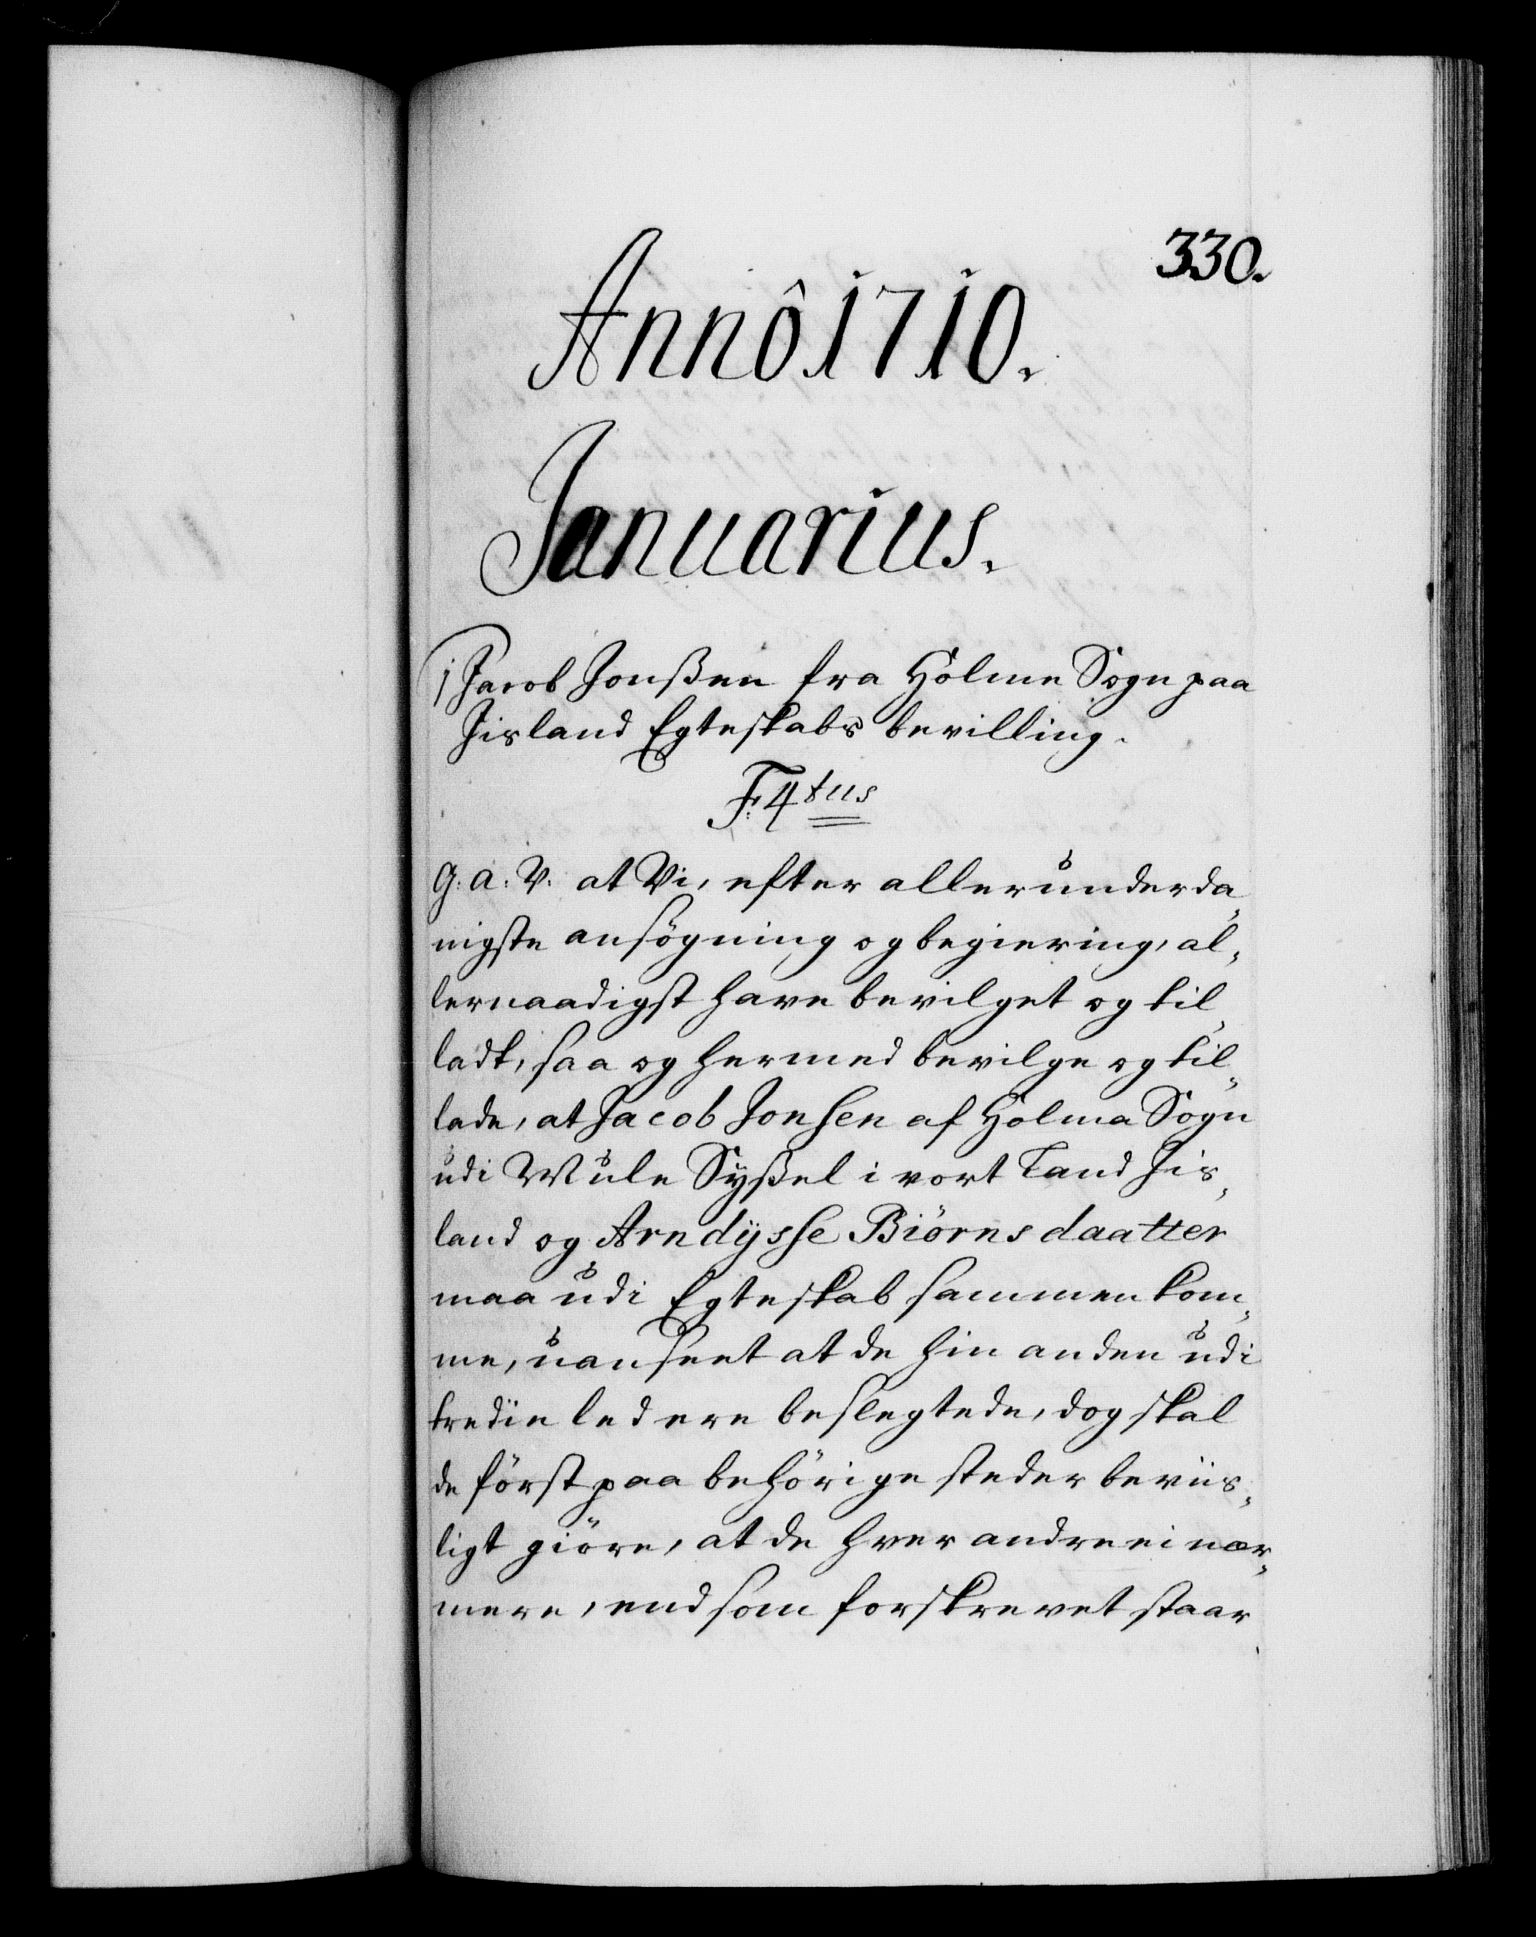 330.
Annô 1710.
Januarius.
1) Jacob Jonßen fra Holme Sogn paa
Jisland Egteskabs bevilling.
F. 4tus
G: A: V: at Vi, efter allerunderda„
nigste ansögning og begiering, al„
lernaadigst have bevilget og til„
ladt, saa og hermed bevilge og til„
lade, at Jacob Jonsen af Holma Sogn
udi Mule Syßel i vort Land Jis„
land og Arndÿsse Biörnsdaatter
maa udi Egteskab sammenkom„
me, uanseet at de hin anden udi
tredie led ere beslegtede, dog skal
de först paa behörige steder beviis„
ligt giöre, at de hver andre ei nær„
mere, end som forskrevet staar